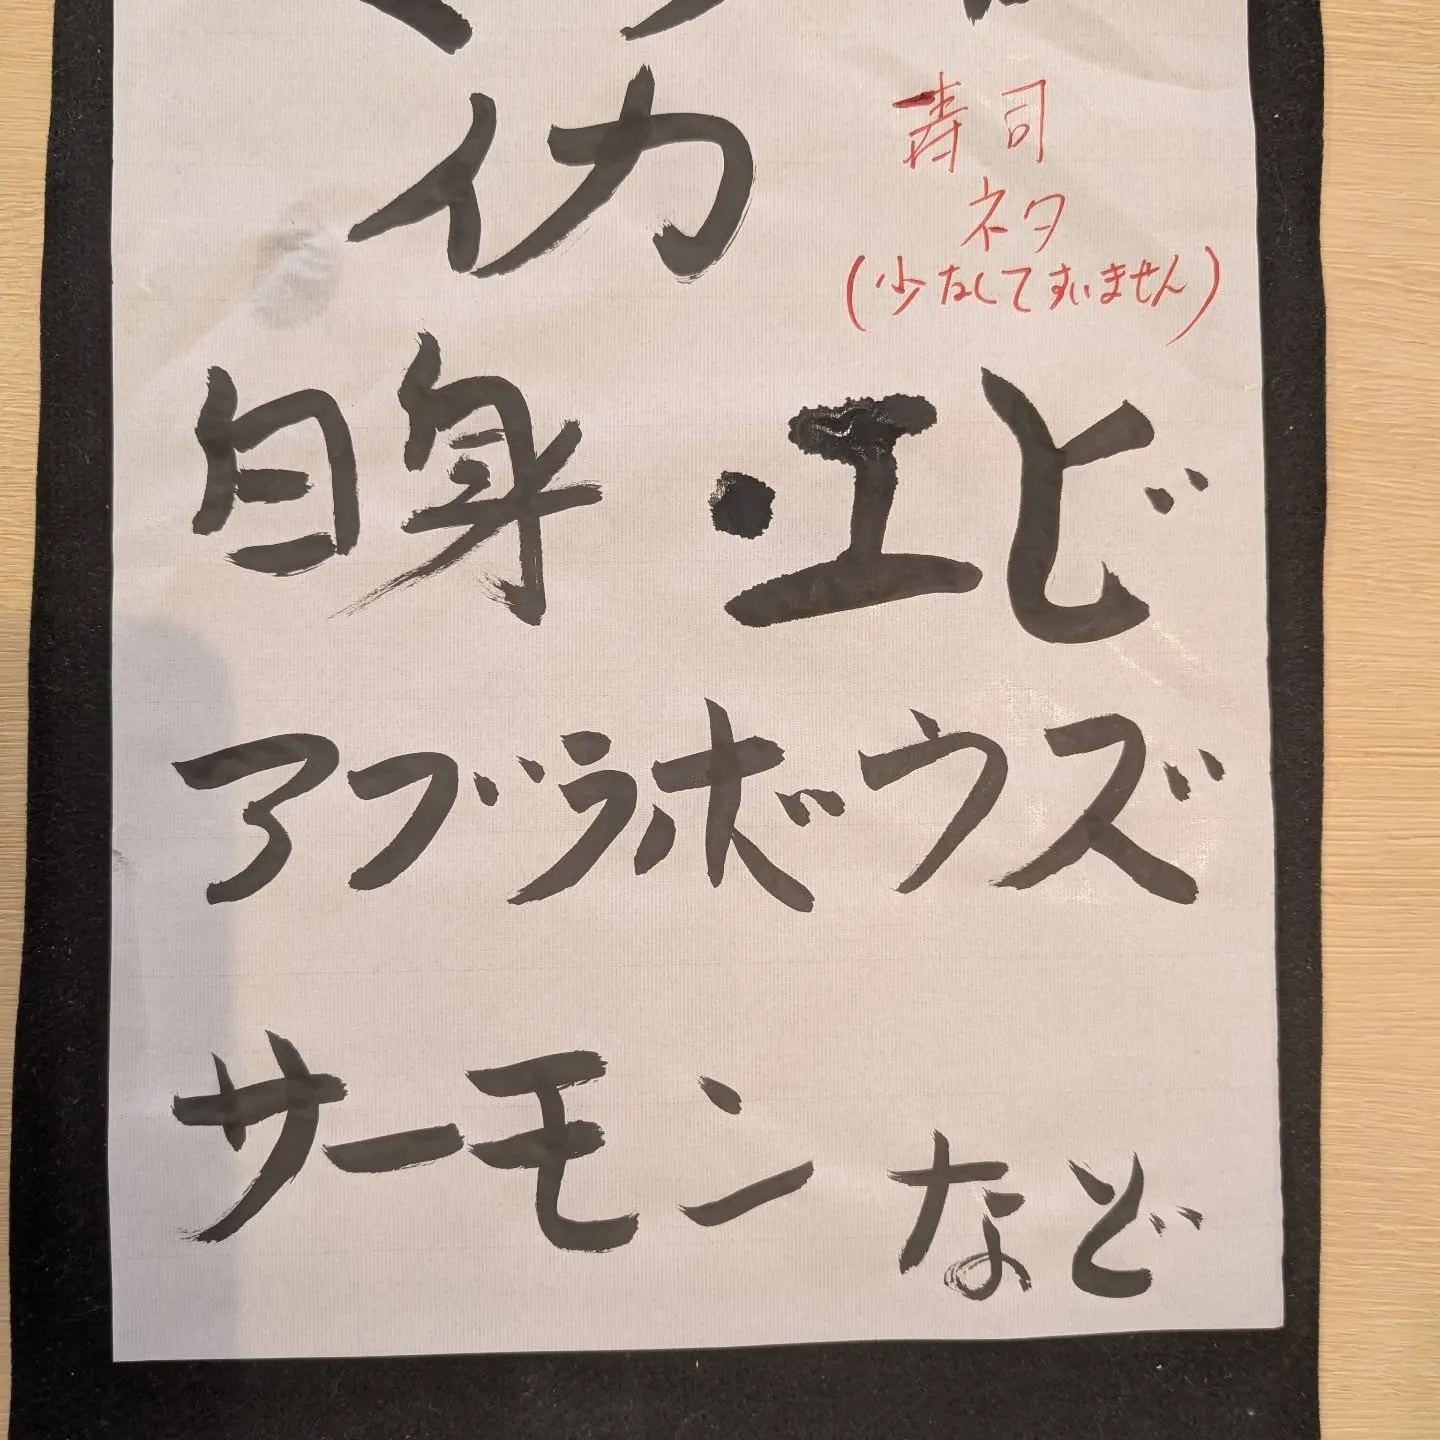 イカ
寿司
ネタ
(少なくてすいません)
白身・エビ
アブラボウズ
サーモンなど